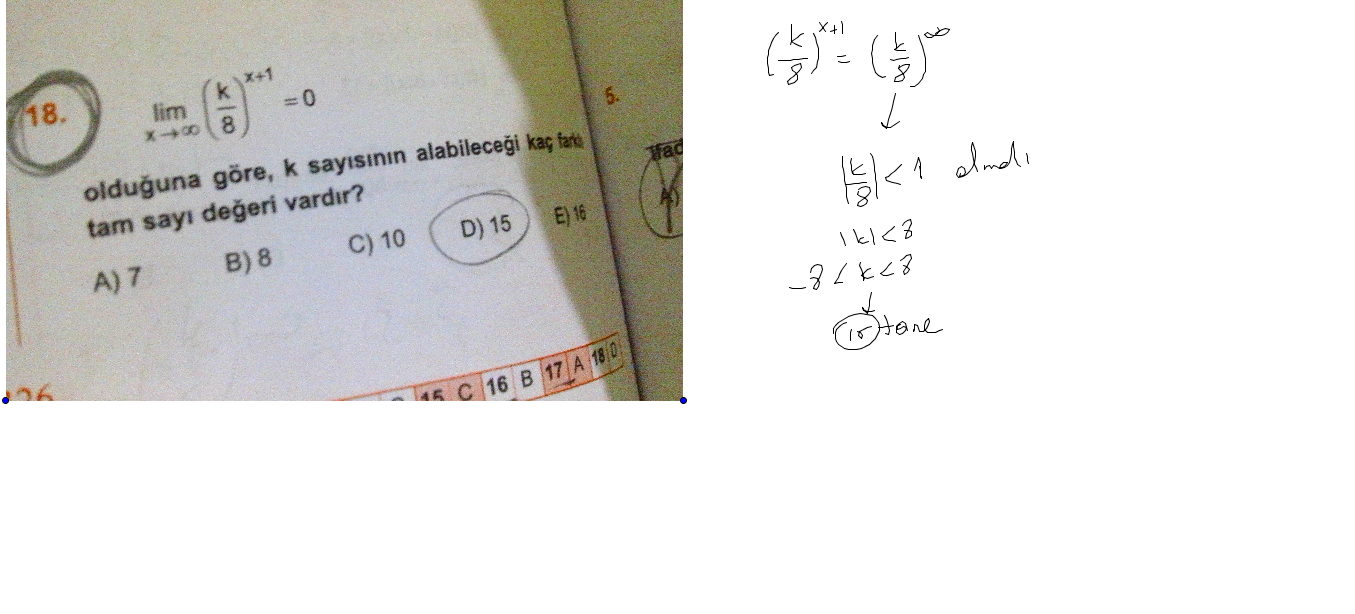 18.
lim x→∞ (k/8)^x+1 = 0
olduğuna göre, k sayısının alabileceği kaç farklı
tam sayı değeri vardır?
A) 7 B) 8 C) 10 D) 15 E) 16
5.
A)
15 C 16 B 17 A 18 D
(k/8)^x+1 = (k/8)^∞
|k/8| < 1 olmalı
|k| < 8
-8 < k < 8
15 tane